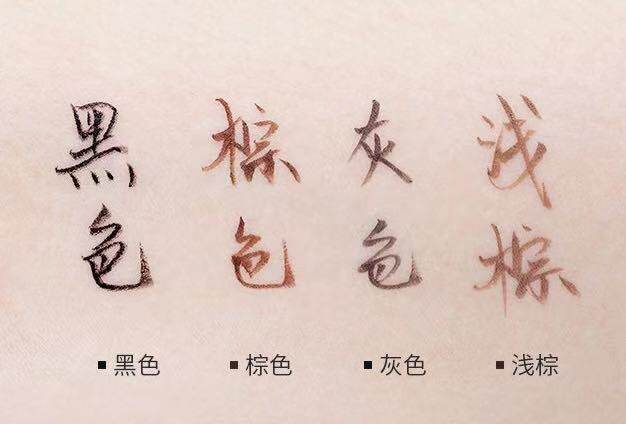 黑色
棕色
灰色
浅棕
黑色
棕色
灰色
浅棕